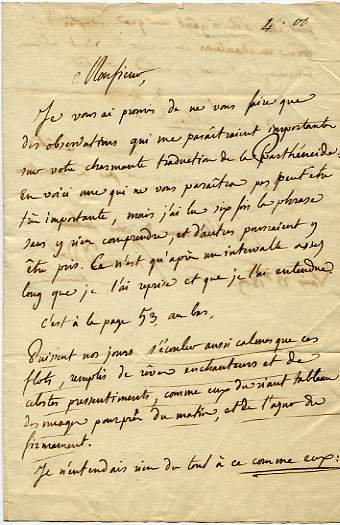 4.00
Monsieur,
Je vous ai promis de ne vous faire que
des observations qui me paraîtraient importantes
sur votre charmante traduction de la Parthénéide.
En voici une qui ne vous paraîtra pas peut être
très importante, mais j'ai lu six fois la phrase
sans y rien comprendre, et d'autres pourraient y
être pris. Ce n'est qu'après un intervale assez
long que je l'ai reprise et que je l'ai entendue
c'est à la page 53, au bas.
Puissent nos jours s'écouler aussi calmes que ces
flots, remplis de rêves enchanteurs et de
célestes pressentiments, comme eux du riant tableau
des nuages pourprés du matin, et de l'azur du
firmament.
Je n'entendais rien du tout à ce comme eux: